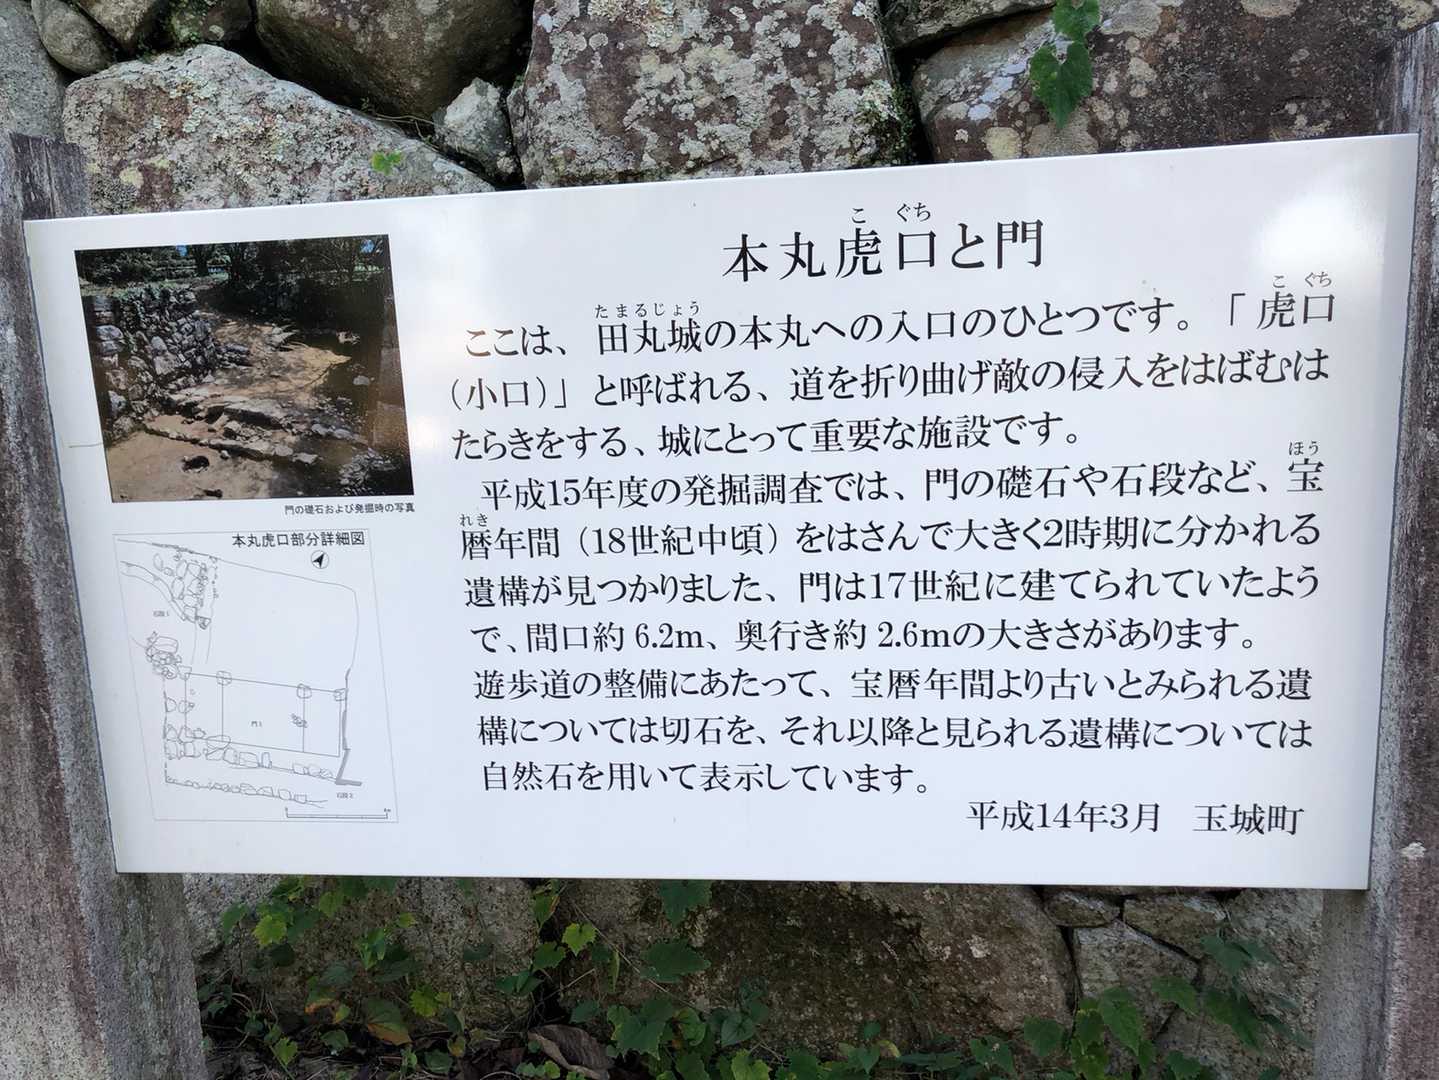 本丸虎口と門
ここは、田丸城の本丸への入口のひとつです。「虎口
（小口）」と呼ばれる、道を折り曲げ敵の侵入をはばむは
たらきをする、城にとって重要な施設です。
平成15年度の発掘調査では、門の礎石や石段など、宝
暦年間（18世紀中頃）をはさんで大きく2時期に分かれる
遺構が見つかりました、門は17世紀に建てられていたよう
で、間口約 6.2m、奥行き約 2.6mの大きさがあります。
遊歩道の整備にあたって、宝暦年間より古いとみられる遺
構については切石を、それ以降と見られる遺構については
自然石を用いて表示しています。
平成14年3月　玉城町
門の礎石および発掘時の写真
本丸虎口部分詳細図
石段1
門1
石段2